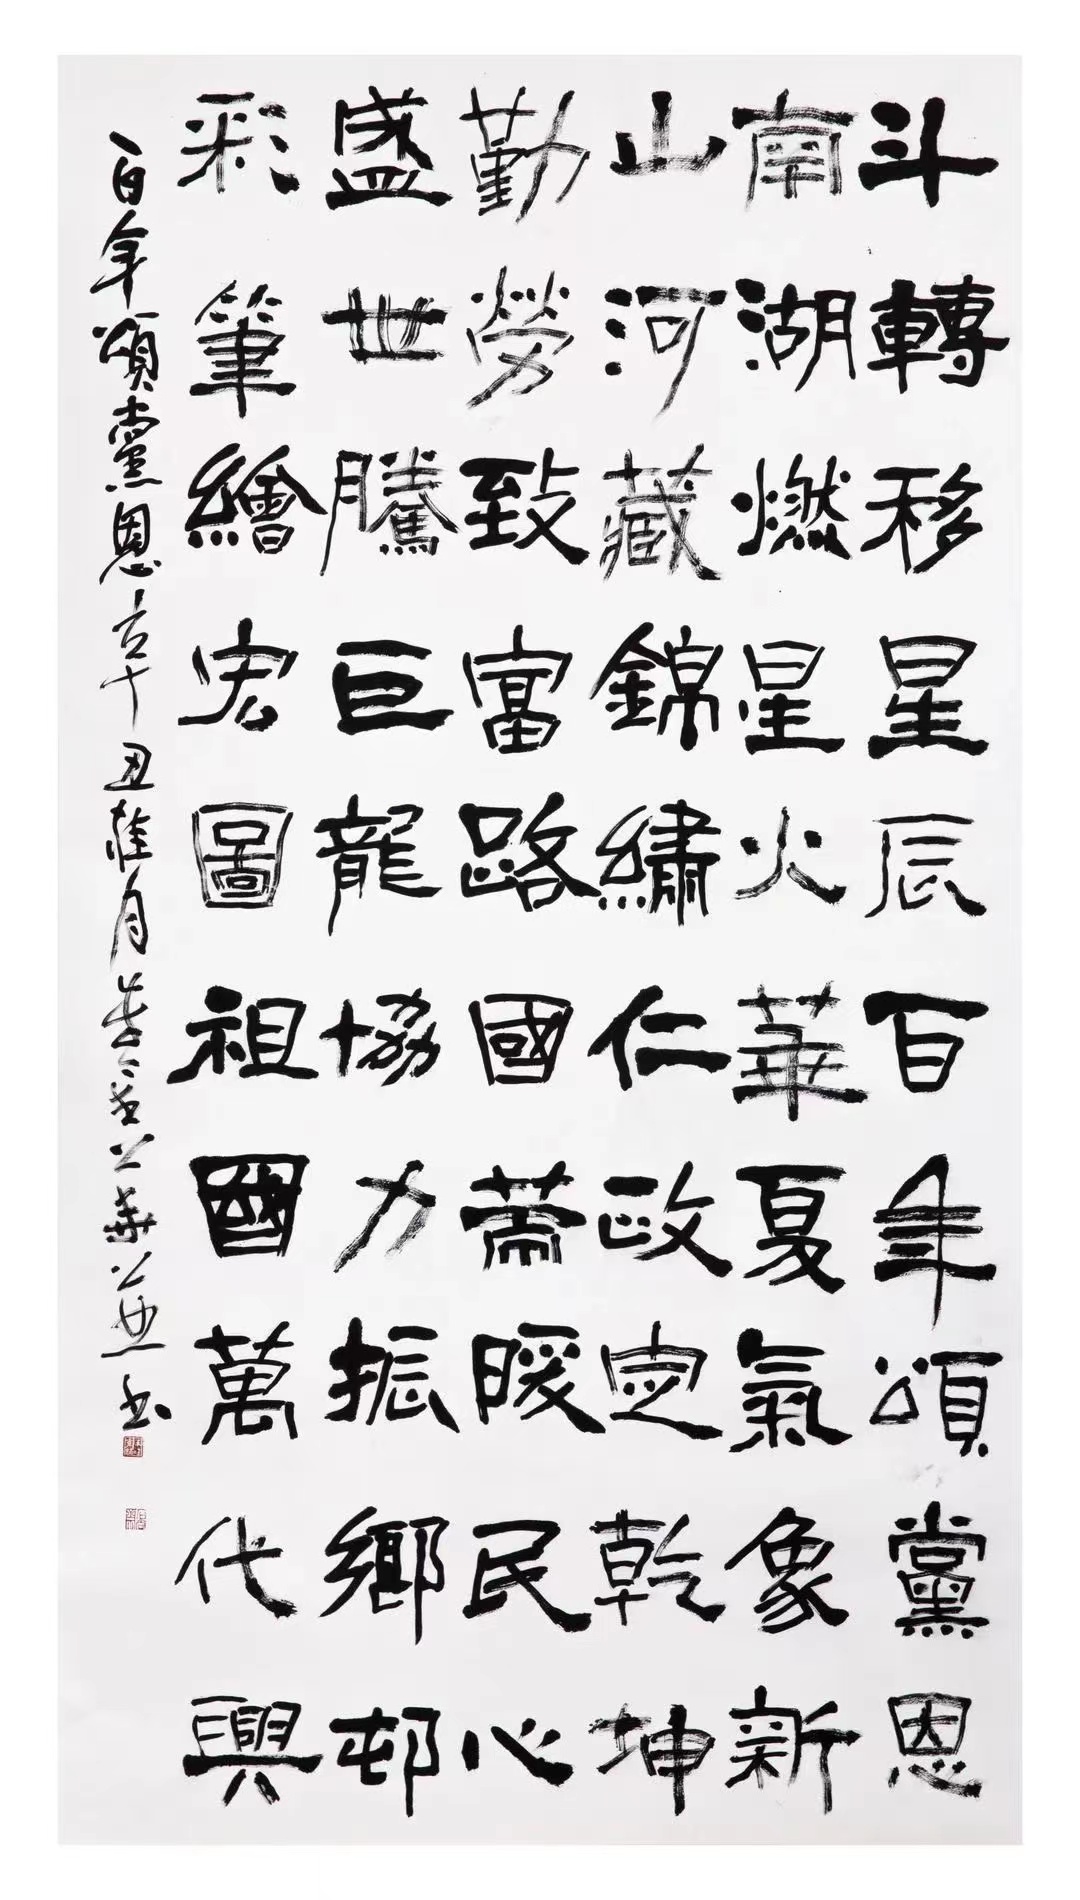 斗轉移星辰百年頌黨恩
南湖燃星火華夏氣象新
山河藏錦繡仁政定乾坤
勤勞致富路國富暖民心
盛世騰巨龍協力振鄉邨
彩筆繪宏圖祖國萬代興
百年頌黨恩 辛丑桂月
書